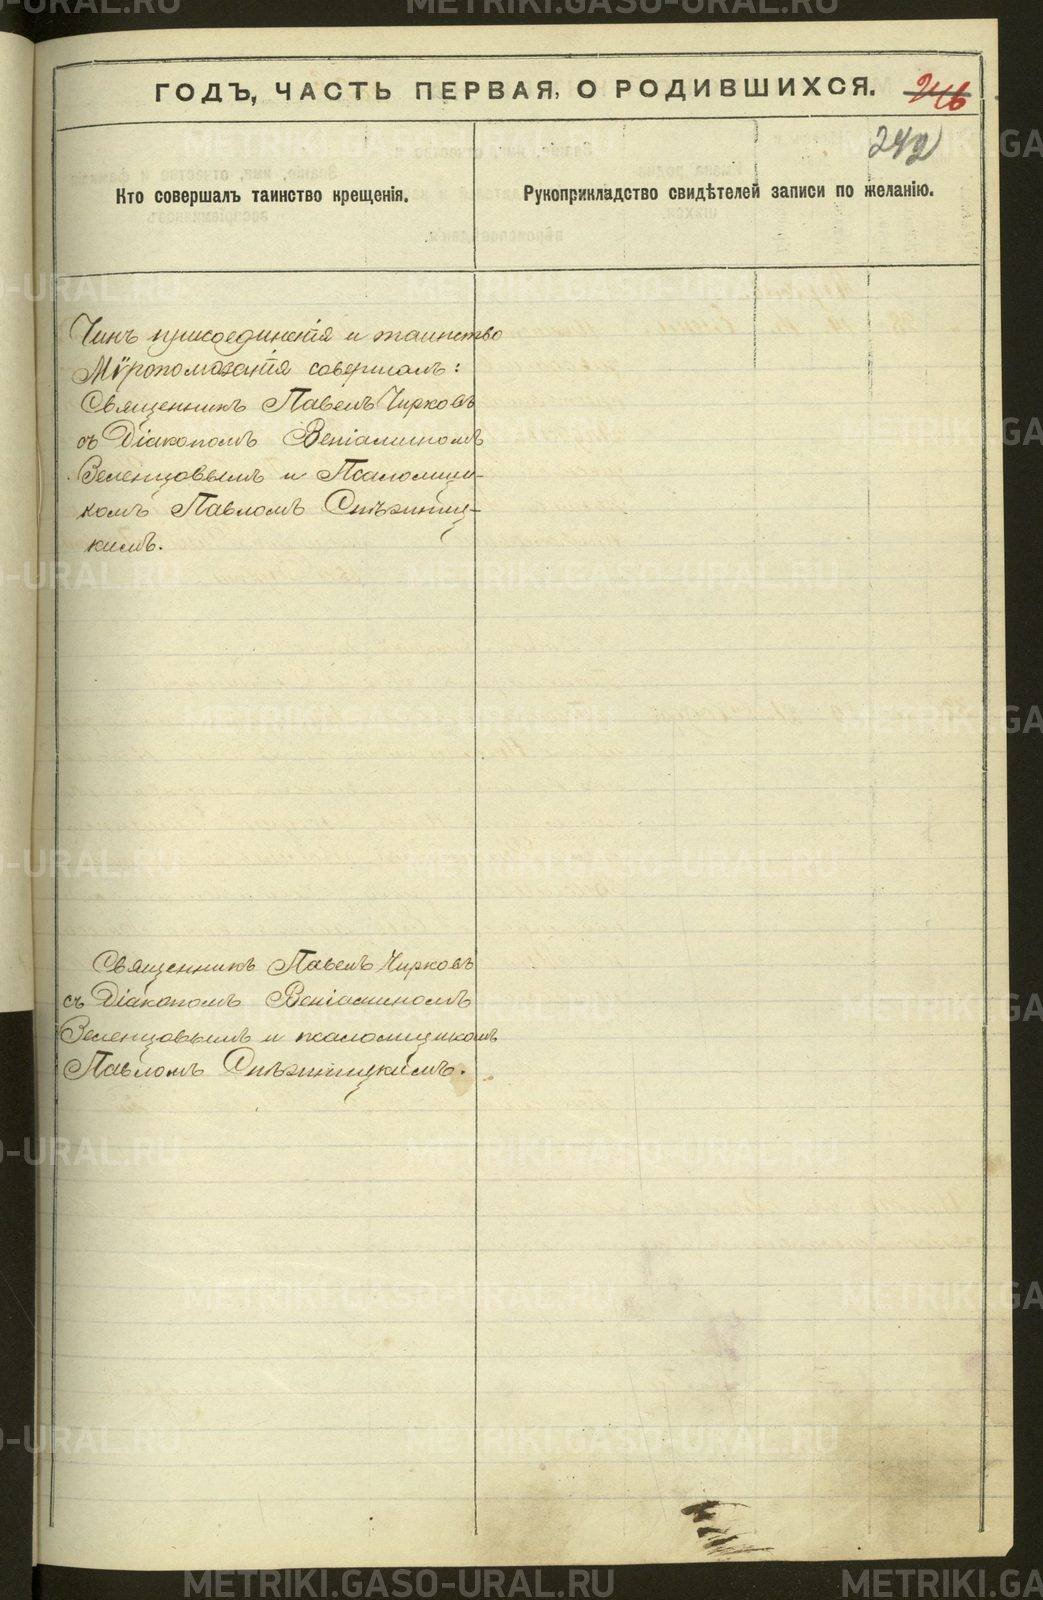 ГОДЪ, ЧАСТЬ ПЕРВАЯ, О РОДИВШИХСЯ.
246
242
Кто совершалъ таинство крещенія.
Рукоприкладство свидѣтелей записи по желанію.
Чинъ присоединенія и таинство
Мѵропомазанія совершалъ:
Священникъ Павелъ Чирковъ
съ Діакономъ Веніаминомъ
Зеленцовымъ и Псаломщи-
комъ Павломъ Снѣжниц-
кимъ.
Священникъ Павелъ Чирковъ
съ Діакономъ Веніаминомъ
Зеленцовымъ и псаломщикомъ
Павломъ Снѣжницкимъ.
METRIKI.GASO-URAL.RU